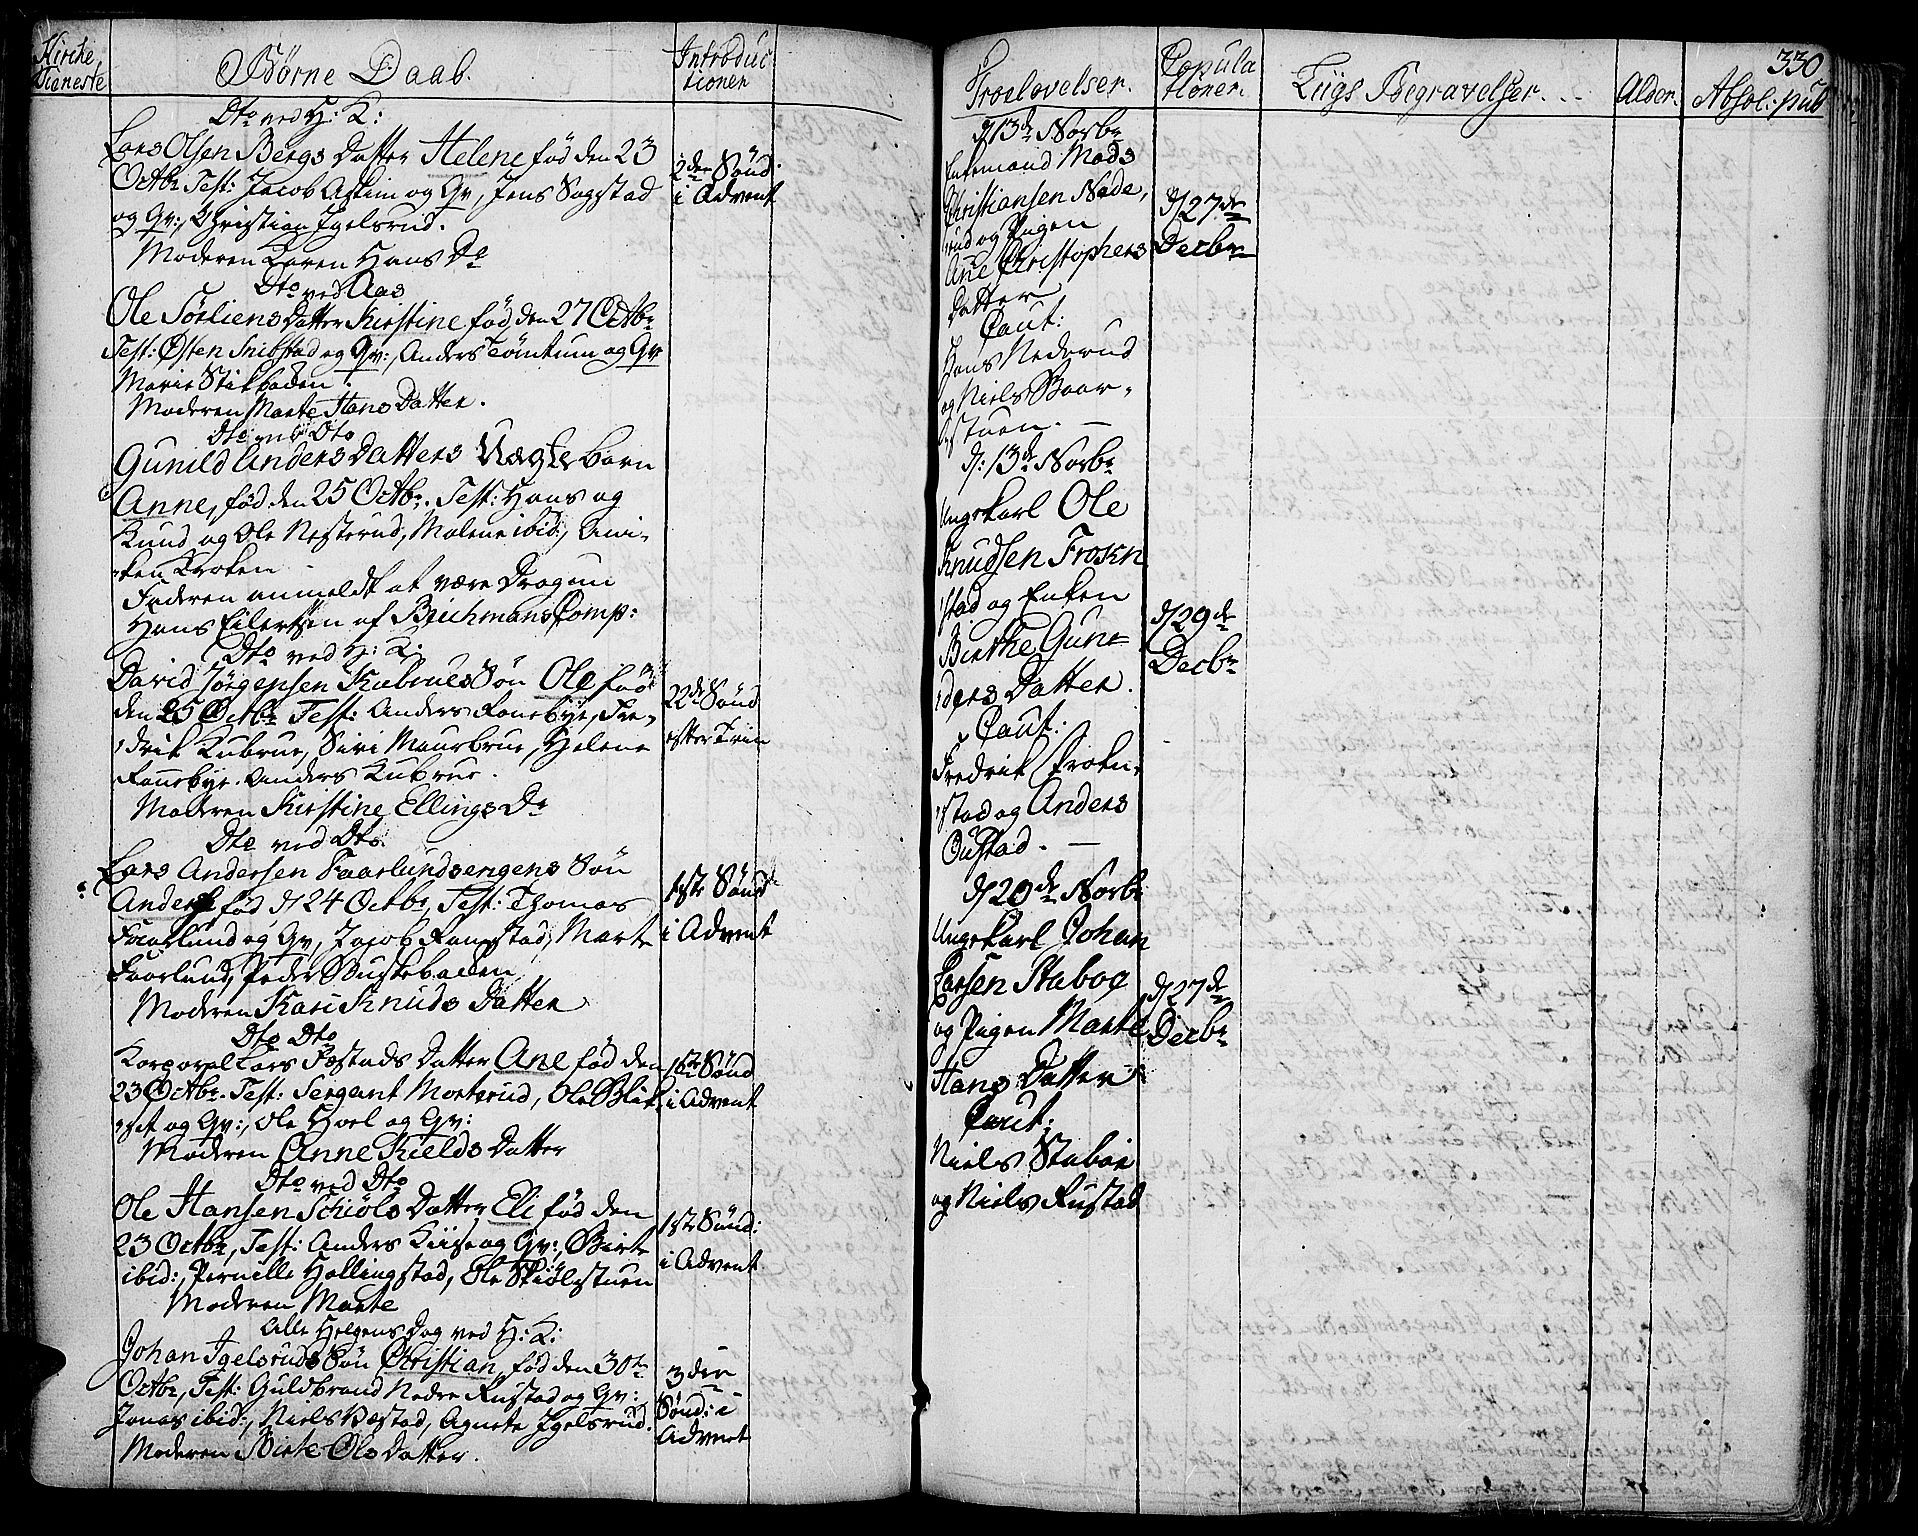 Kirche
Tieneste
Børne Daab.
Introduc
tioner
Dto ved H: K:
Lars Olsen Bergs Datter Helene fød den 23
Octbr Test: Jacob Askim og Qv, Jens Sogstad
og Qv:, Christian Igelsrud.
Moderen Karen Hans Dr
2den Sønd
i Advent
Dto ved Aas
Ole Sørliens Datter Kirstine fød den 27 Octbr
Test: Østen Snibstad og Qv:, Anders Tømtum og Qv
Marie Stikbaden
Moderen Marte Hans Datter.
Dto ved Dto
Gunild Anders Datters Uægte barn
Anne, fød den 25 Octbr. Test: Hans og
Knud og Ole Nesterud, Malene ibid:, Ani-
ken Kroken
Faderen anmeldt at være Dragun
Hans Eilertsen af Buchmans Comp:
Dto ved H: K:
David Jørgensen Kubrues Søn Ole fød
den 25 Octbr Test: Anders Fonebye, Fre-
drik Kubrue, Siri Maurbrue, Helene
Fonebye. Anders Kubrue.
Moderen Kirstine Ellings Dr
22de Sønd
efter Trin
Dto ved Dto
Lars Andersen Faarlundsengens Søn
Anders fød d 24 Octbr, Test: Thomas
Faarlund og Qv, Jacob Fangstad, Marte
Faarlund, Peder Bustebaden
Moderen Kari Knuds Datter
1ste Sønd
i Advent
Dto Dto
Korporal Lars Festads Datter Ane fød den
23 Octbr. Test: Sergant Morterud, Ole Blik-
set og Qv:, Ole Hoel og Qv:
Moderen Anne Kields Datter
1ste Sønd
i Advent
Dto ved Dto
Ole Hansen Schiøls Datter Eli fød den
23 Octbr, Test: Anders Kiise og Qv:, Birte
ibid:, Pernille Hollingstad, Ole Skiølsstuen
Moderen Marte
1ste Sønd:
i Advent
Alle Helgens Dag ved H: K:
Johan Igelsruds Søn Christian, fød den 30te
Octbr, Test: Guldbrand Nedre Rustad og Qv:
Jonas ibid:, Niels Bæstad, Agnete Igelsrud.
Moderen Birte Ols Datter.
3die
Sønd: i
Advent
Trolovelser.
Copula
tioner.
Liigs Begravelser. --
Alder.
Absol: publ
330
d 13de Novbr
Enkemand Mads
Christiansen Nede,
rud og Pigen
Ane Christophers
Datter
Caut:
Hans Nederud
og Niels Baar-
stuen. —
d 27de
Decbr
d: 13de Novbr
Ungekarl Ole
Knudsen Frokn
stad og Enken
Birthe Gun
ders Datter.
Caut:
Fredrik Frokn
stad og Anders
Oustad. —
d 29de
Decbr
d 20de Novbr
Ungekarl Johan
Larsen Staboe
og Pigen Marte
Hans Datter
Caut:
Niels Staboe
og Niels Rustad
d 27de
Decbr